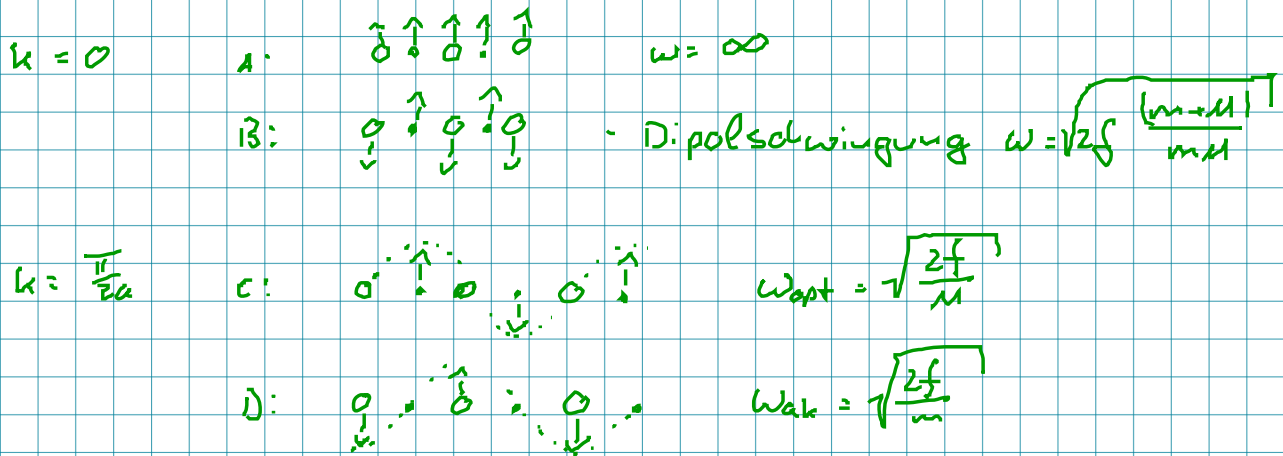 k = 0 A: ω = ∞
B: - Dipolschwingung ω = √2f (m+M)/mM
k = π/2a C: ωopt = √2f/M
D: ωak = √2f/m